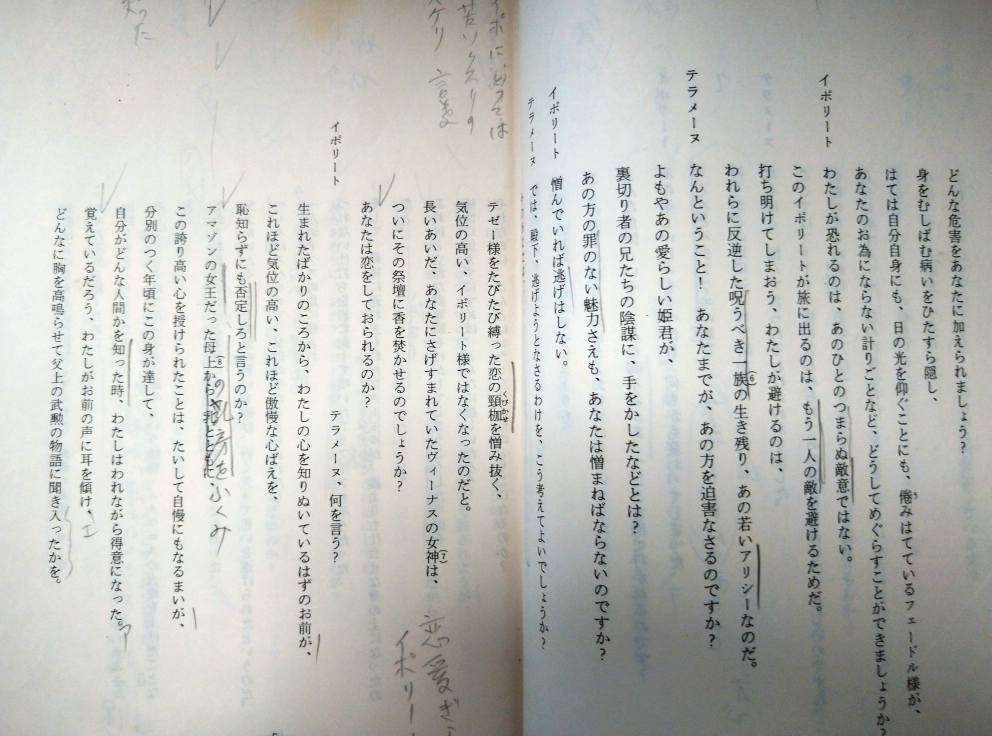 どんな危害をあなたに加えられましょう？
身をむしばむ病いをひたすら隠し、
はては自分自身にも、日の光を仰ぐことにも、倦みはてているフェードル様が、
あなたのお為にならない計りごとなど、どうしてめぐらすことができましょうか？
イポリート
わたしが恐れるのは、あのひとのつまらぬ敵意ではない。
このイポリートが旅に出るのは、もう一人の敵を避けるためだ。
打ち明けてしまおう、わたしが避けるのは、
われらに反逆した呪うべき一族(6)の生き残り、あの若いアリシーなのだ。
テラメーヌ
なんということ！　あなたまでが、あの方を迫害なさるのですか？
よもやあの愛らしい姫君が、
裏切り者の兄たちの陰謀に、手をかしたなどとは？
あの方の罪のない魅力さえも、あなたは憎まねばならないのですか？
イポリート
憎んでいれば逃げはしない。
テラメーヌ
では、殿下、逃げようとなさるわけを、こう考えてよいでしょうか？
テゼー様をたびたび縛った恋の頸枷を憎み抜く、
くびかせ
気位の高い、イポリート様ではなくなったのだと。
長いあいだ、あなたにさげすまれていたヴィーナスの女神(7)は、
ついにその祭壇に香を焚かせるのでしょうか？
あなたは恋をしておられるのか？
イポリート
テラメーヌ、何を言う？
生まれたばかりのころから、わたしの心を知りぬいているはずのお前が、
これほど気位の高い、これほど傲慢な心ばえを、
恥知らずにも否定しろと言うのか？
アマゾンの女王だった母上(8)から、乳とともに、
の乳房をふくみ
この誇り高い心を授けられたことは、たいして自慢にもなるまいが、
分別のつく年頃にこの身が達して、
自分がどんな人間かを知った時、わたしはわれながら得意になった。
覚えているだろう、わたしがお前の声に耳を傾け、
どんなに胸を高鳴らせて父上の武勲の物語に聞き入ったかを。
イポにとっては
苦いクスリの
言葉
った
恋愛ぎ
イポリー